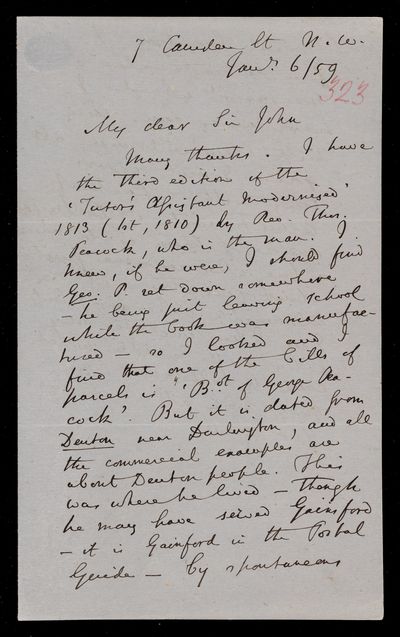 7 Camden St N.W.
Jany. 6/59
323
My dear Sir John
Many thanks. I have
the third edition of the
'Tutor's Assistant Modernised'
1813 (1st, 1810) by Rev. Thos.
Peacock, who is the man. I
knew, if he were, I should find
Geo. P. set down somewhere
- he being just leaving school
while the book was manufac-
tured - so I looked and I
find that one of the bills of
parcels is 'Bot of George Pea-
cock'. But it is dated from
Denton near Darlington, and all
the commercial examples are
about Denton people. This
was where he lived - though
he may have served Gainsford
- it is Gainford in the Postal
Guide - by spontaneous